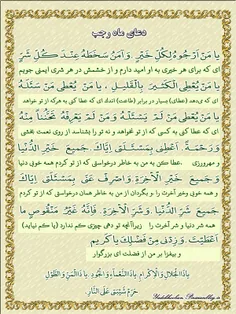 دعای ماه رجب
يا مَنْ اَرْجُوهُ لِكُلِّ خَيْرٍ وَ آمَنُ سَخَطَهُ عِنْدَ كُلِّ شَرٍّ
ای که برای هر خیری به او امید دارم و از خشمش در هر شری ایمنی جویم
يا مَنْ يُعْطِى الْكَثيرَ بِالْقَليلِ ، يا مَنْ يُعْطى مَنْ سَئَلَهُ
ای که می‌دهد (عطای) بسیار در برابر (طاعت) اندک ای که عطا کنی به هرکه از تو خواهد
يا مَنْ يُعْطى مَنْ لَمْ يَسْئَلْهُ وَ مَنْ لَمْ يَعْرِفْهُ تَحَنُّناً مِنْهُ
ای که عطا کنی به کسی که از تو نخواهد و نه تو را بشناسد از روی نعمت بخشی
وَ رَحْمَةً ، اَعْطِنى بِمَسْئَلَتى اِيّاكَ جَميعَ خَيْرِ الدُّنْيا
و مهرورزی . عطا کن به من به خاطر درخواستی که از تو کردم همه خوبی دنیا
وَ جَميعَ خَيْرِ الْآخِرَةِ وَ اصْرِفْ عَنّى بِمَسْئَلَتى اِيّاكَ
و همه خوبی وخیر آخرت را و بگردان از من به خاطر همان درخواستی که از تو کردم
جَميعَ شَرِّ الدُّنْيا وَ شَرِّ الْآخِرَةِ. فَاِنَّهُ غَيْرُ مَنْقُوصٍ ما
همه شر دنیا و شر آخرت را زیرا آنچه تو دهی چیزی کم ندارد (یا کم نیاید)
اَعْطَيْتَ وَ زِدْنى مِنْ فَضْلِكَ يا كَريمُ
و بیفزا بر من از فضلت ای بزرگوار
يا ذَا الْجَلالِ وَ الْاِكْرامِ يا ذَا النَّعْماءِ وَ الْجُودِ يا ذَا الْمَنِّ وَ الطَّوْلِ
حَرِّمْ شَيْبَتى عَلَى النّارِ